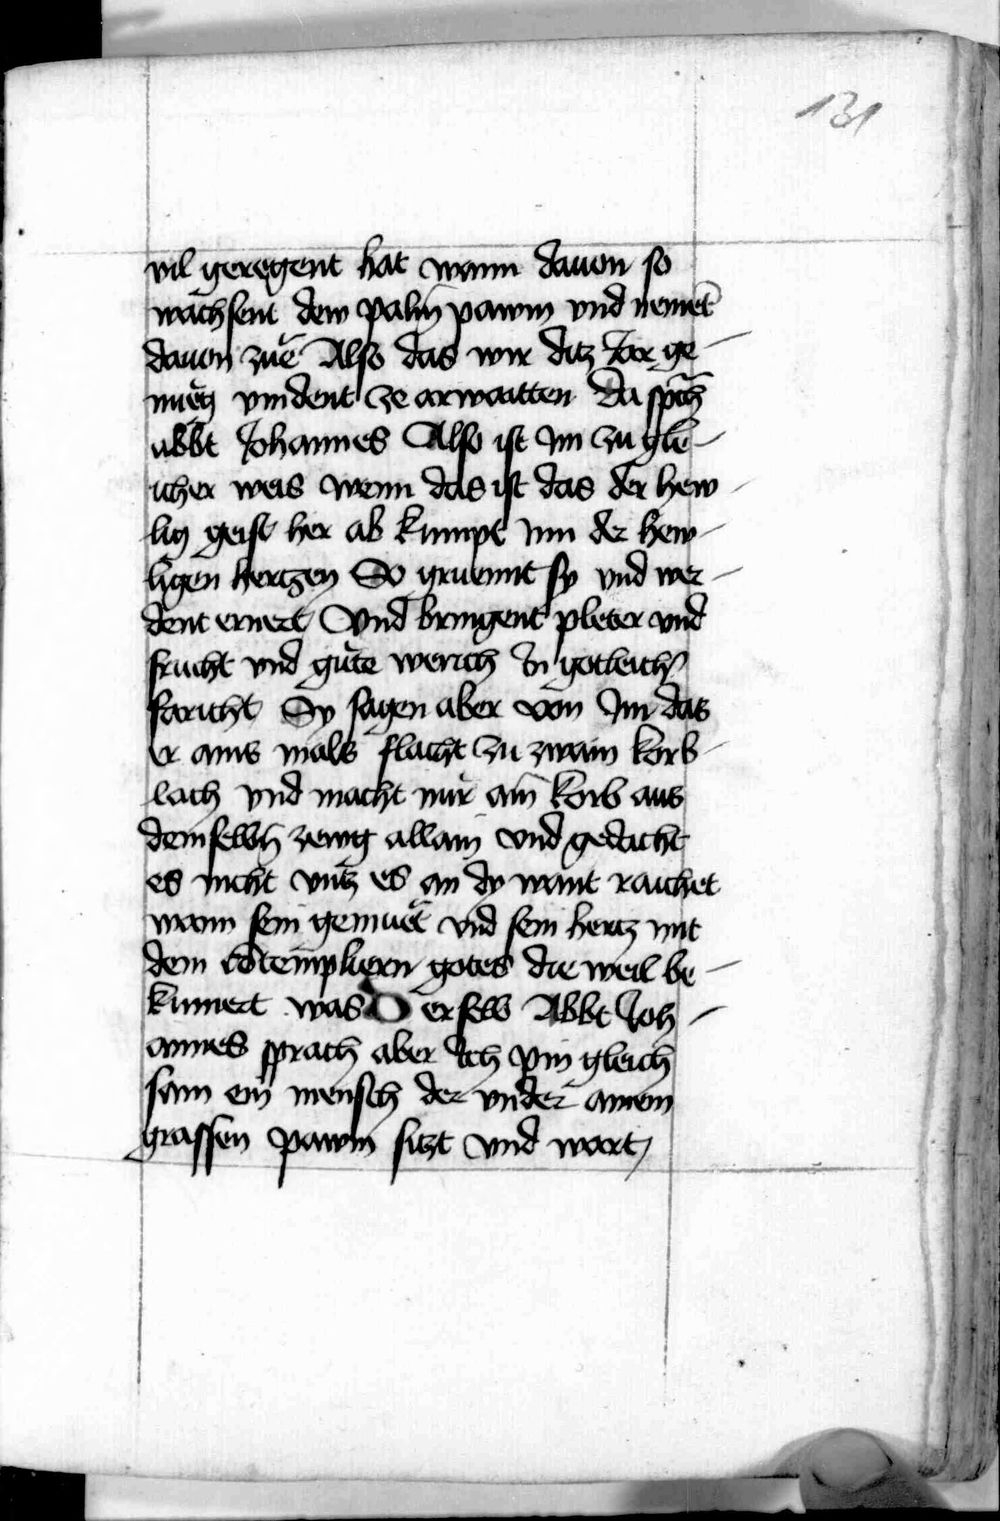 131
vil geregent hat wann dauon so
wachsent dew palm pawm vnd nemet̄
dauon zue Also das wir ditz Jar ge-
nueg vindent ze arwaitten Da sp̄ch
abbt Johannes Also ist Im zu gle-
icher weis wenn das ist das der hew-
lig geist her ab kumpt Inn der hew-
ligen hertzen So gruennt sy vnd wer-
dent ernert Vnd bringent pleter vnd
frucht vnd gute werich In gotleich
foricht Sy sagen aber von Im das
er ains mals flacht zu zwain korb-
lach vnd macht nur ain korb aus
demselbn̄ zewg allain vnd gedacht
es nicht vntz es an dy want raichet
wann sein gemuet vnd sein hertz mit
dem cōtempliern gotes die weil be-
kumert was Der selb Abbt Joh-
annes sprach aber Ich pin gleich
sam ein mensch der vnder ainem
grassen pawm sitzt vnd wart